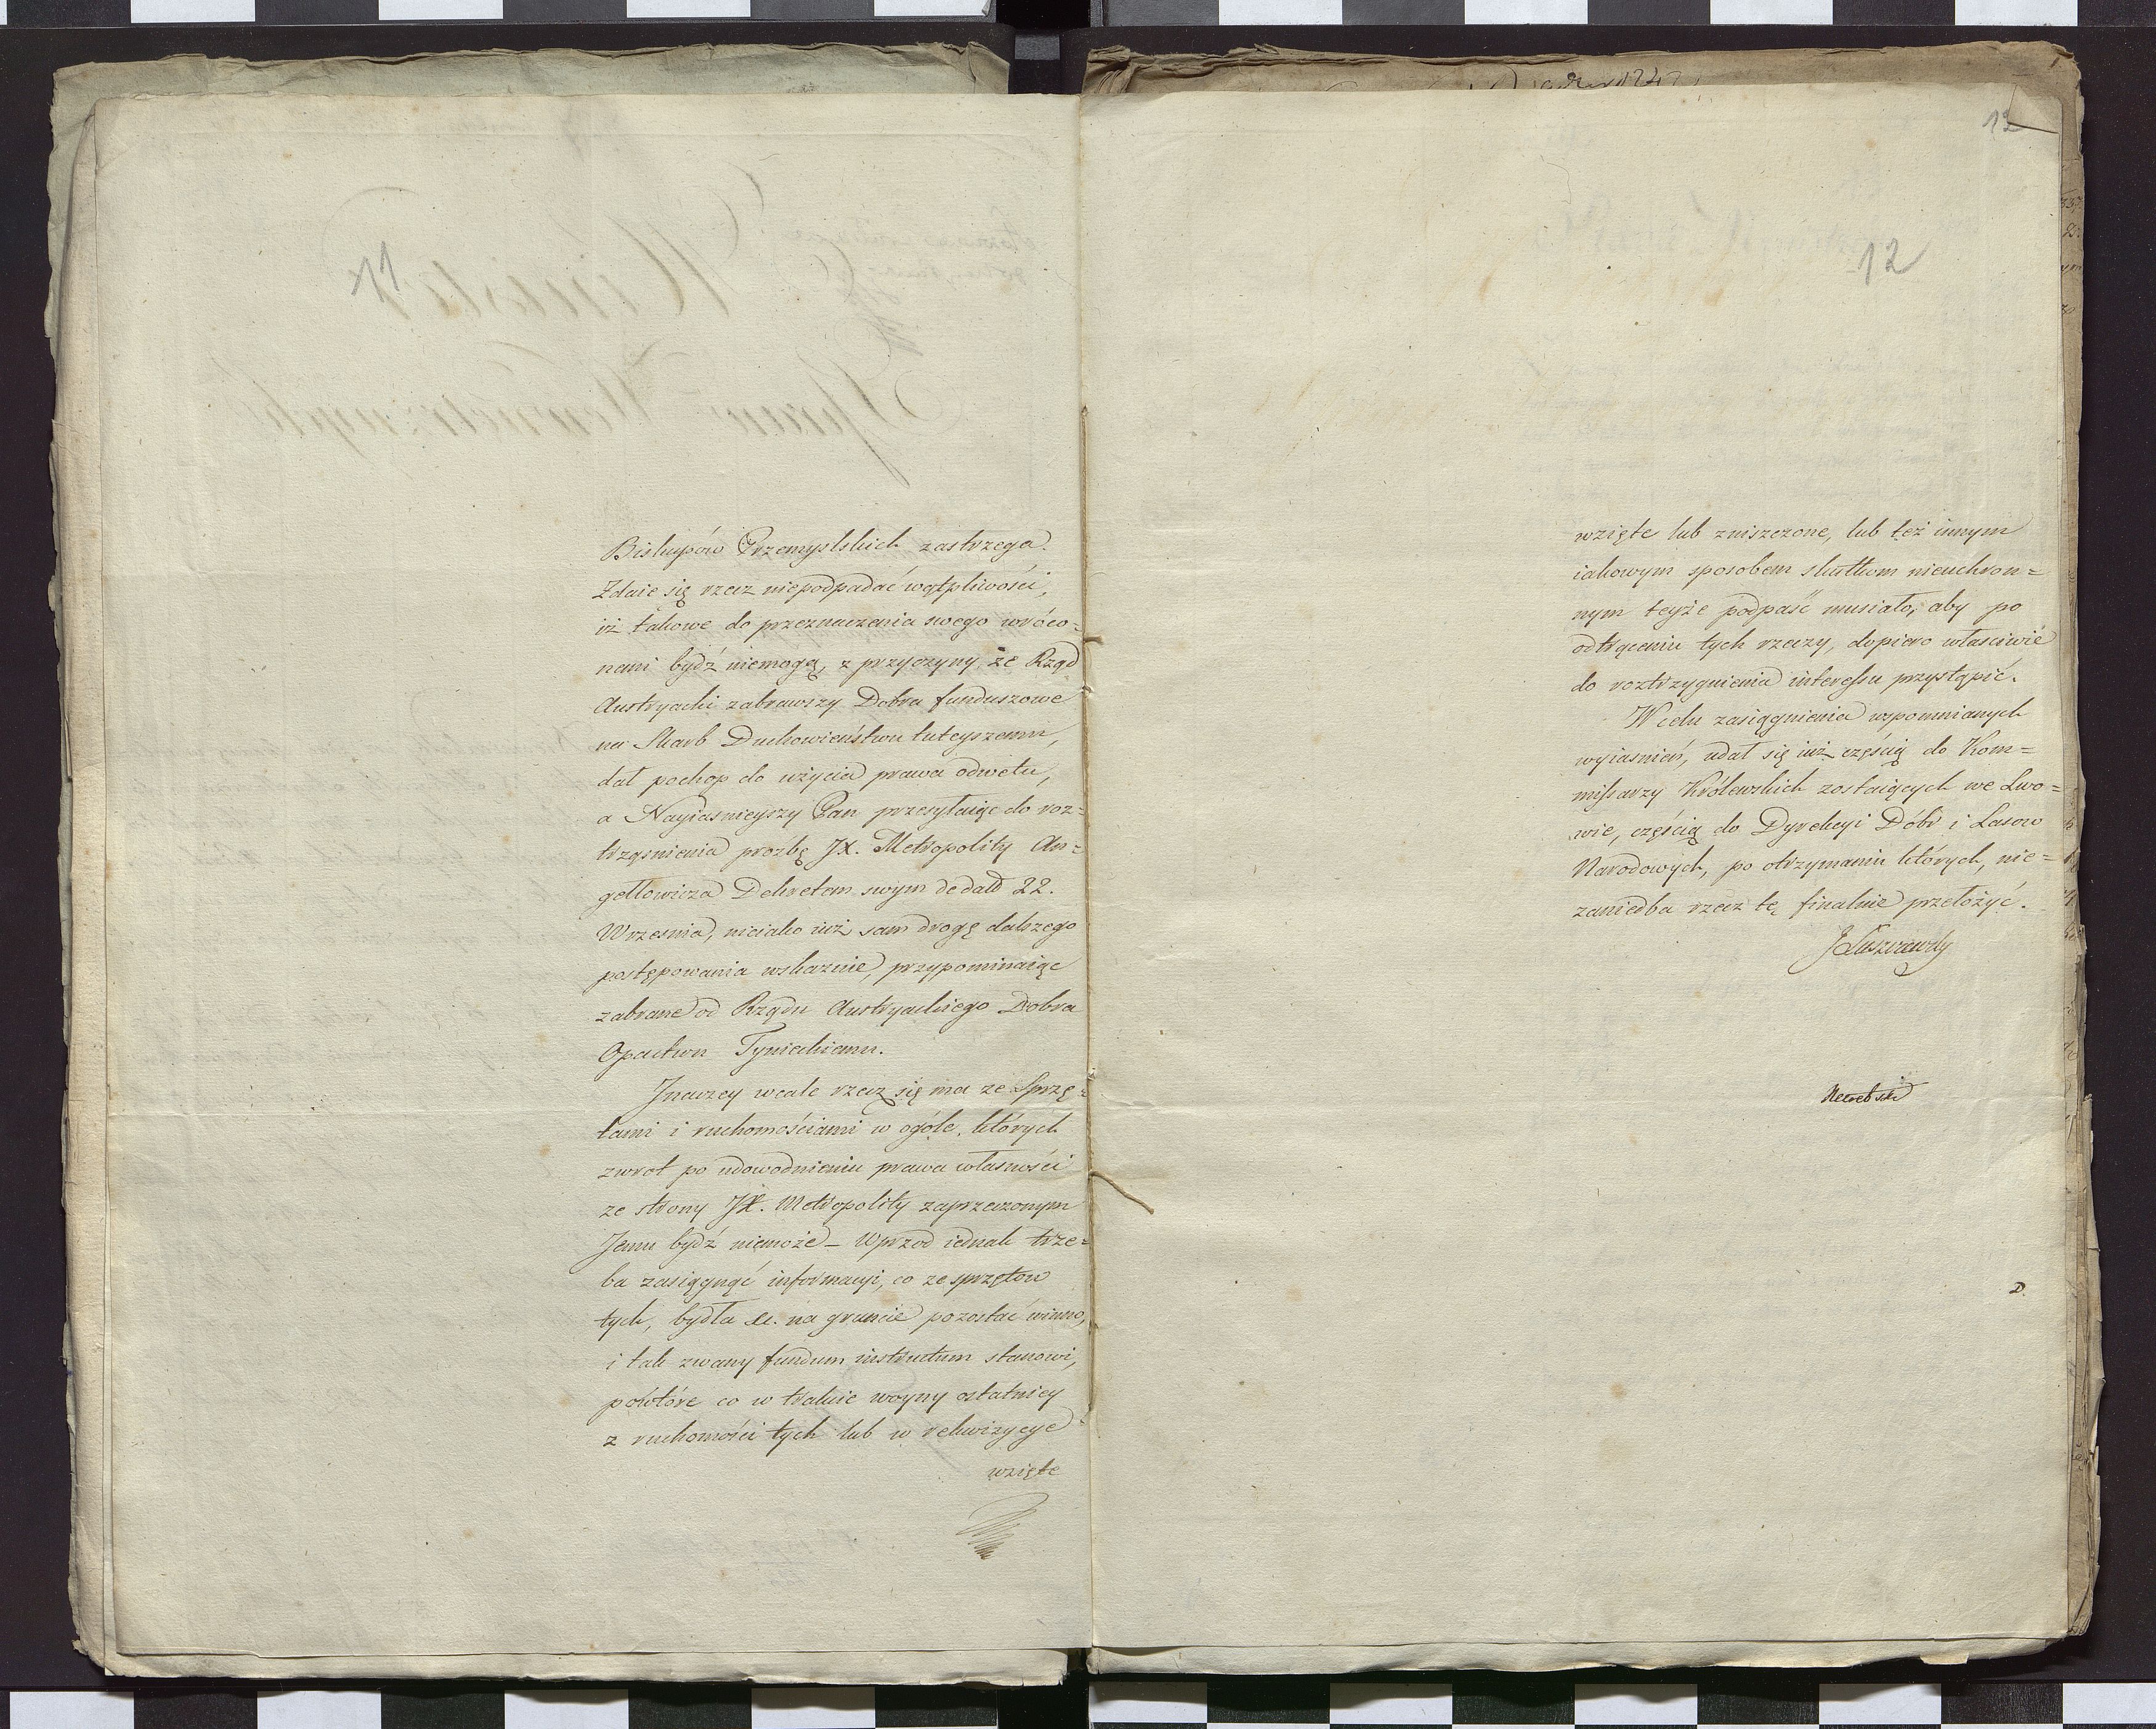 11
Biskupów Przemyslskich zastrzega.
Zdaie się rzecz niepodpadać wątpliwości,
iż takowe do przeznaczenia swego wróco=
nemi bydź niemogą, z przyczyny że Rząd
Austryacki zabrawszy Dobra funduszowe
na Skarb Duchowieństwu tuteyszemu,
dał pochop do użycia prawa odwetu,
a Nayiasnieyszy Pan przesyłaiąc do roz=
trząsnienia proźbę JX. Metropolity An=
gellowicza Dekretem swym de dato 22.
Wrzesnia, nieiako iuż sam drogę dalszego
postępowania wskazuie, przypominaiąc
zabrane od Rządu Austryackiego Dobra
Opactwu Tynieckiemu.
Jnaczey wcale rzecz się ma ze Sprzę=
tami i ruchomościami w ogóle, których
zwrot po udowodnieniu prawa własności
ze strony JX. Metropolity zaprzeczonym
Jemu bydź niemoże – Wprzod iednak trze=
ba zasiągnąć informacyi, co ze sprzętow
tych, bydła &c. na gruncie pozostać winno,
i tak zwany fundum instructum stanowi,
powtóre co w trakcie woyny ostatniey
z ruchomości tych lub w rekwizycye
wzięte
12
12
wzięte lub zniszczone, lub też innym
iakowym sposobem skutkom nieuchron=
nym teyże podpaść musiało, aby po
odtrąceniu tych rzeczy, dopiero właściwie
do roztrzygnienia interessu przystąpić.
W celu zasiągnienia wspomnianych
wyiasnień, udał się iuż częścią do Kom=
missarzy Królewskich zostaiących we Lwo=
wie, częścią do Dyrekcyi Dóbr i Lasow
Narodowych, po otrzymaniu których, nie=
zaniedba rzecz tę finalnie przełożyć.
J Łuszczewski
D.